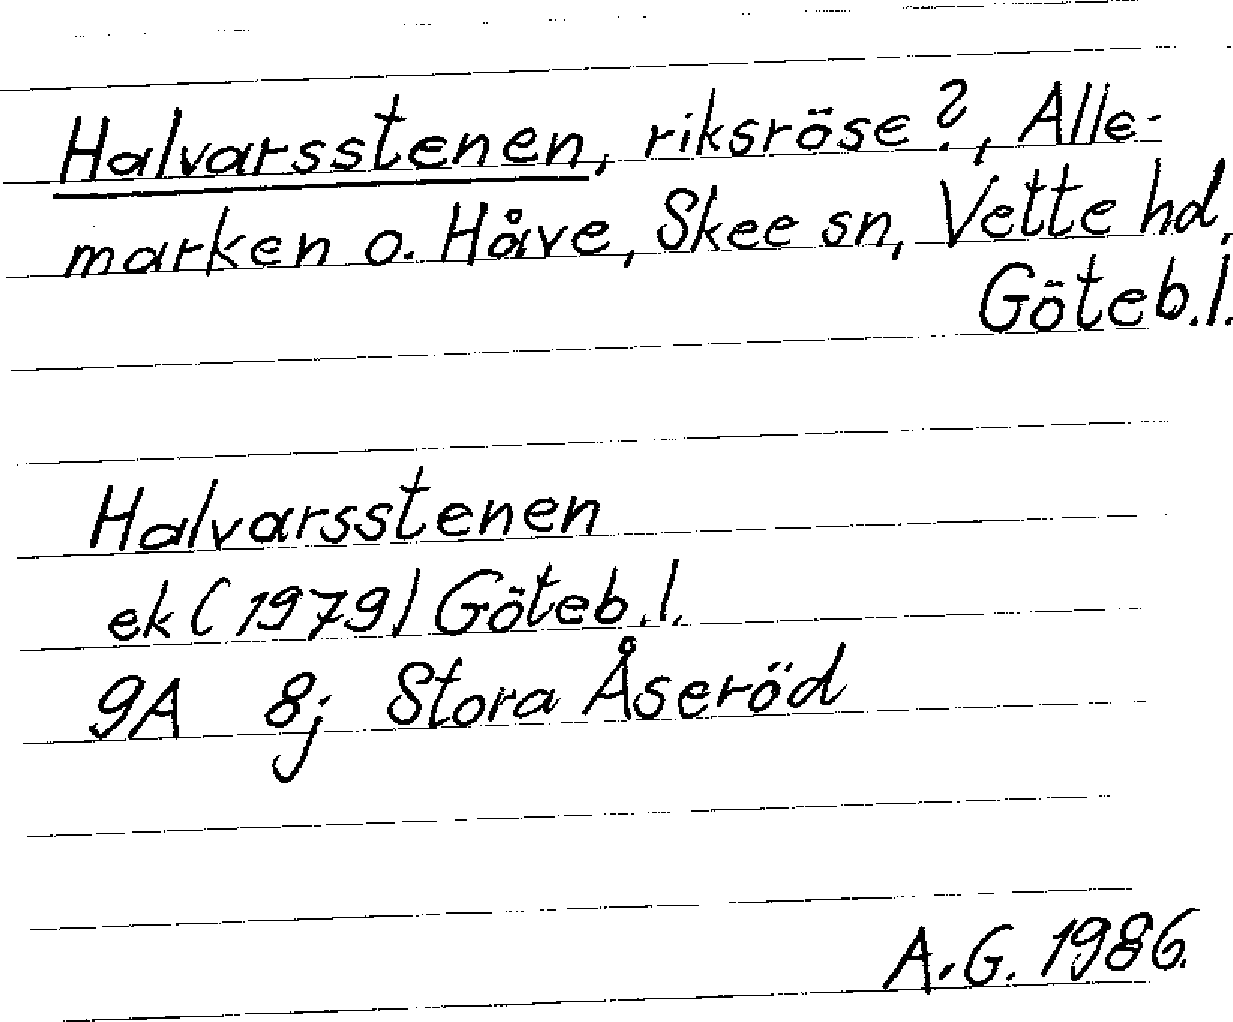 Halvarsstenen, riksröse?, Alle-
marken o. Håve, Skee sn, Vette hd,
Göteb.l.
Halvarsstenen
ek (1979) Göteb.l.
9A 8j Stora Åseröd
A.G. 1986.